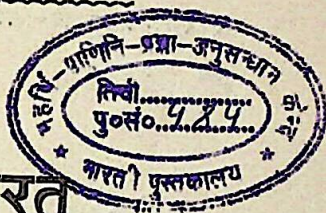 महर्षि-पाणिनि-प्रभा-अनुसन्धान केन्द्र
तिथी..............
पु०सं० ५८५
* भारती पुस्तकालय *
रत